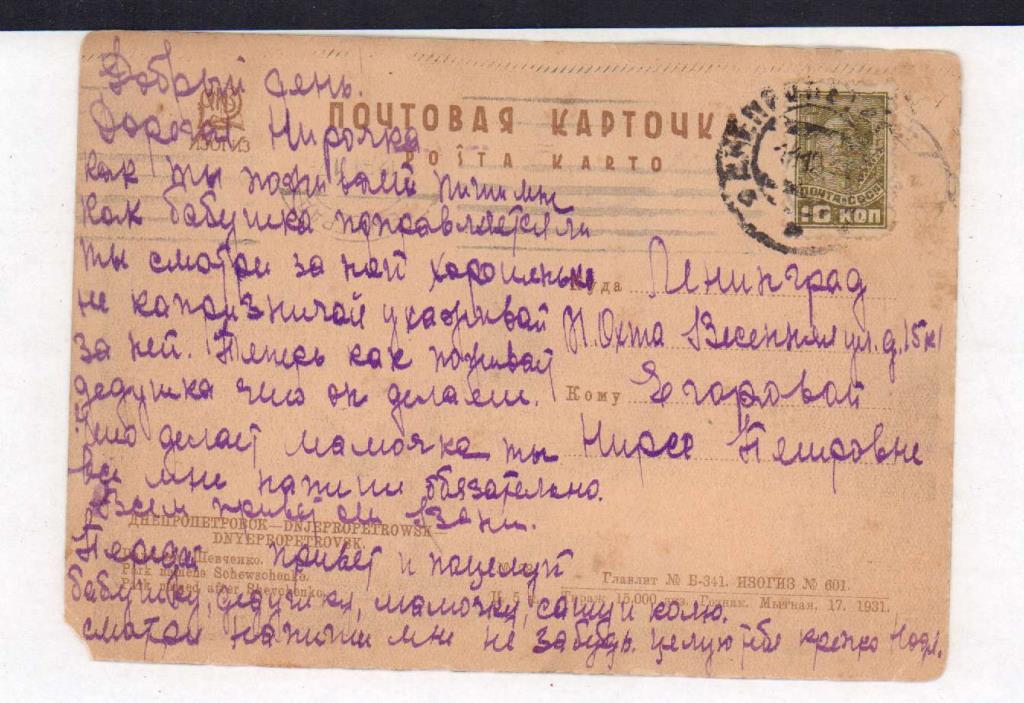 Добрый день.
ИЗОГИЗ
ПОЧТОВАЯ КАРТОЧК
POŜTA KARTO
Дорогая Нирочка
как ты поживаеш пиши мне
как бабушка поправляется ли
ты смотри за ней хорошенько
не капризничай ухаживай
за ней. Теперь как поживай
дедушка что он делает.
Что делает мамочка ты
все мне напиши обязательно.
Всем привет от Вани.
Передай привет и поцелуй
бабушку, дедушку, мамочку, сашу и колю.
смотри напиши мне не забудь. целую тебя крепко Надя.
ПОЧТА СССР
10 КОП
Куда Ленинград
Н. Охта Весенняя ул. д. 15 к 1
Кому Егоровой
Нирее Петровне
ДНЕПРОПЕТРОВСК—DNJEPROPETROWSK—
DNYEPROPETROVSK.
Шевченко.
Park namens Schewschenko.
Park named after Shevchenko.
Главлит № Б-341. ИЗОГИЗ № 601.
Тираж 15.000 экз. Гознак. Мытная, 17. 1931.